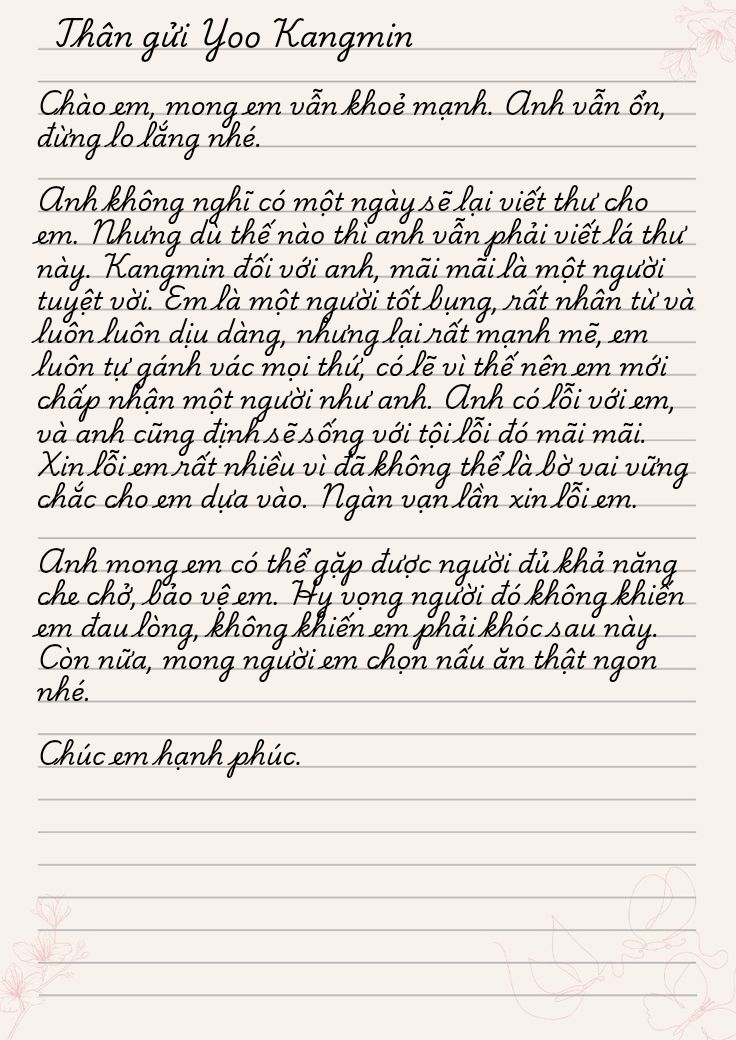 Thân gửi Yoo Kangmin
Chào em, mong em vẫn khoẻ mạnh. Anh vẫn ổn,
đừng lo lắng nhé.
Anh không nghĩ có một ngày sẽ lại viết thư cho
em. Nhưng dù thế nào thì anh vẫn phải viết lá thư
này. Kangmin đối với anh, mãi mãi là một người
tuyệt vời. Em là một người tốt bụng, rất nhân từ và
luôn luôn dịu dàng, nhưng lại rất mạnh mẽ, em
luôn tự gánh vác mọi thứ, có lẽ vì thế nên em mới
chấp nhận một người như anh. Anh có lỗi với em,
và anh cũng định sẽ sống với tội lỗi đó mãi mãi.
Xin lỗi em rất nhiều vì đã không thể là bờ vai vững
chắc cho em dựa vào. Ngàn vạn lần xin lỗi em.
Anh mong em có thể gặp được người đủ khả năng
che chở, bảo vệ em. Hy vọng người đó không khiến
em đau lòng, không khiến em phải khóc sau này.
Còn nữa, mong người em chọn nấu ăn thật ngon
nhé.
Chúc em hạnh phúc.